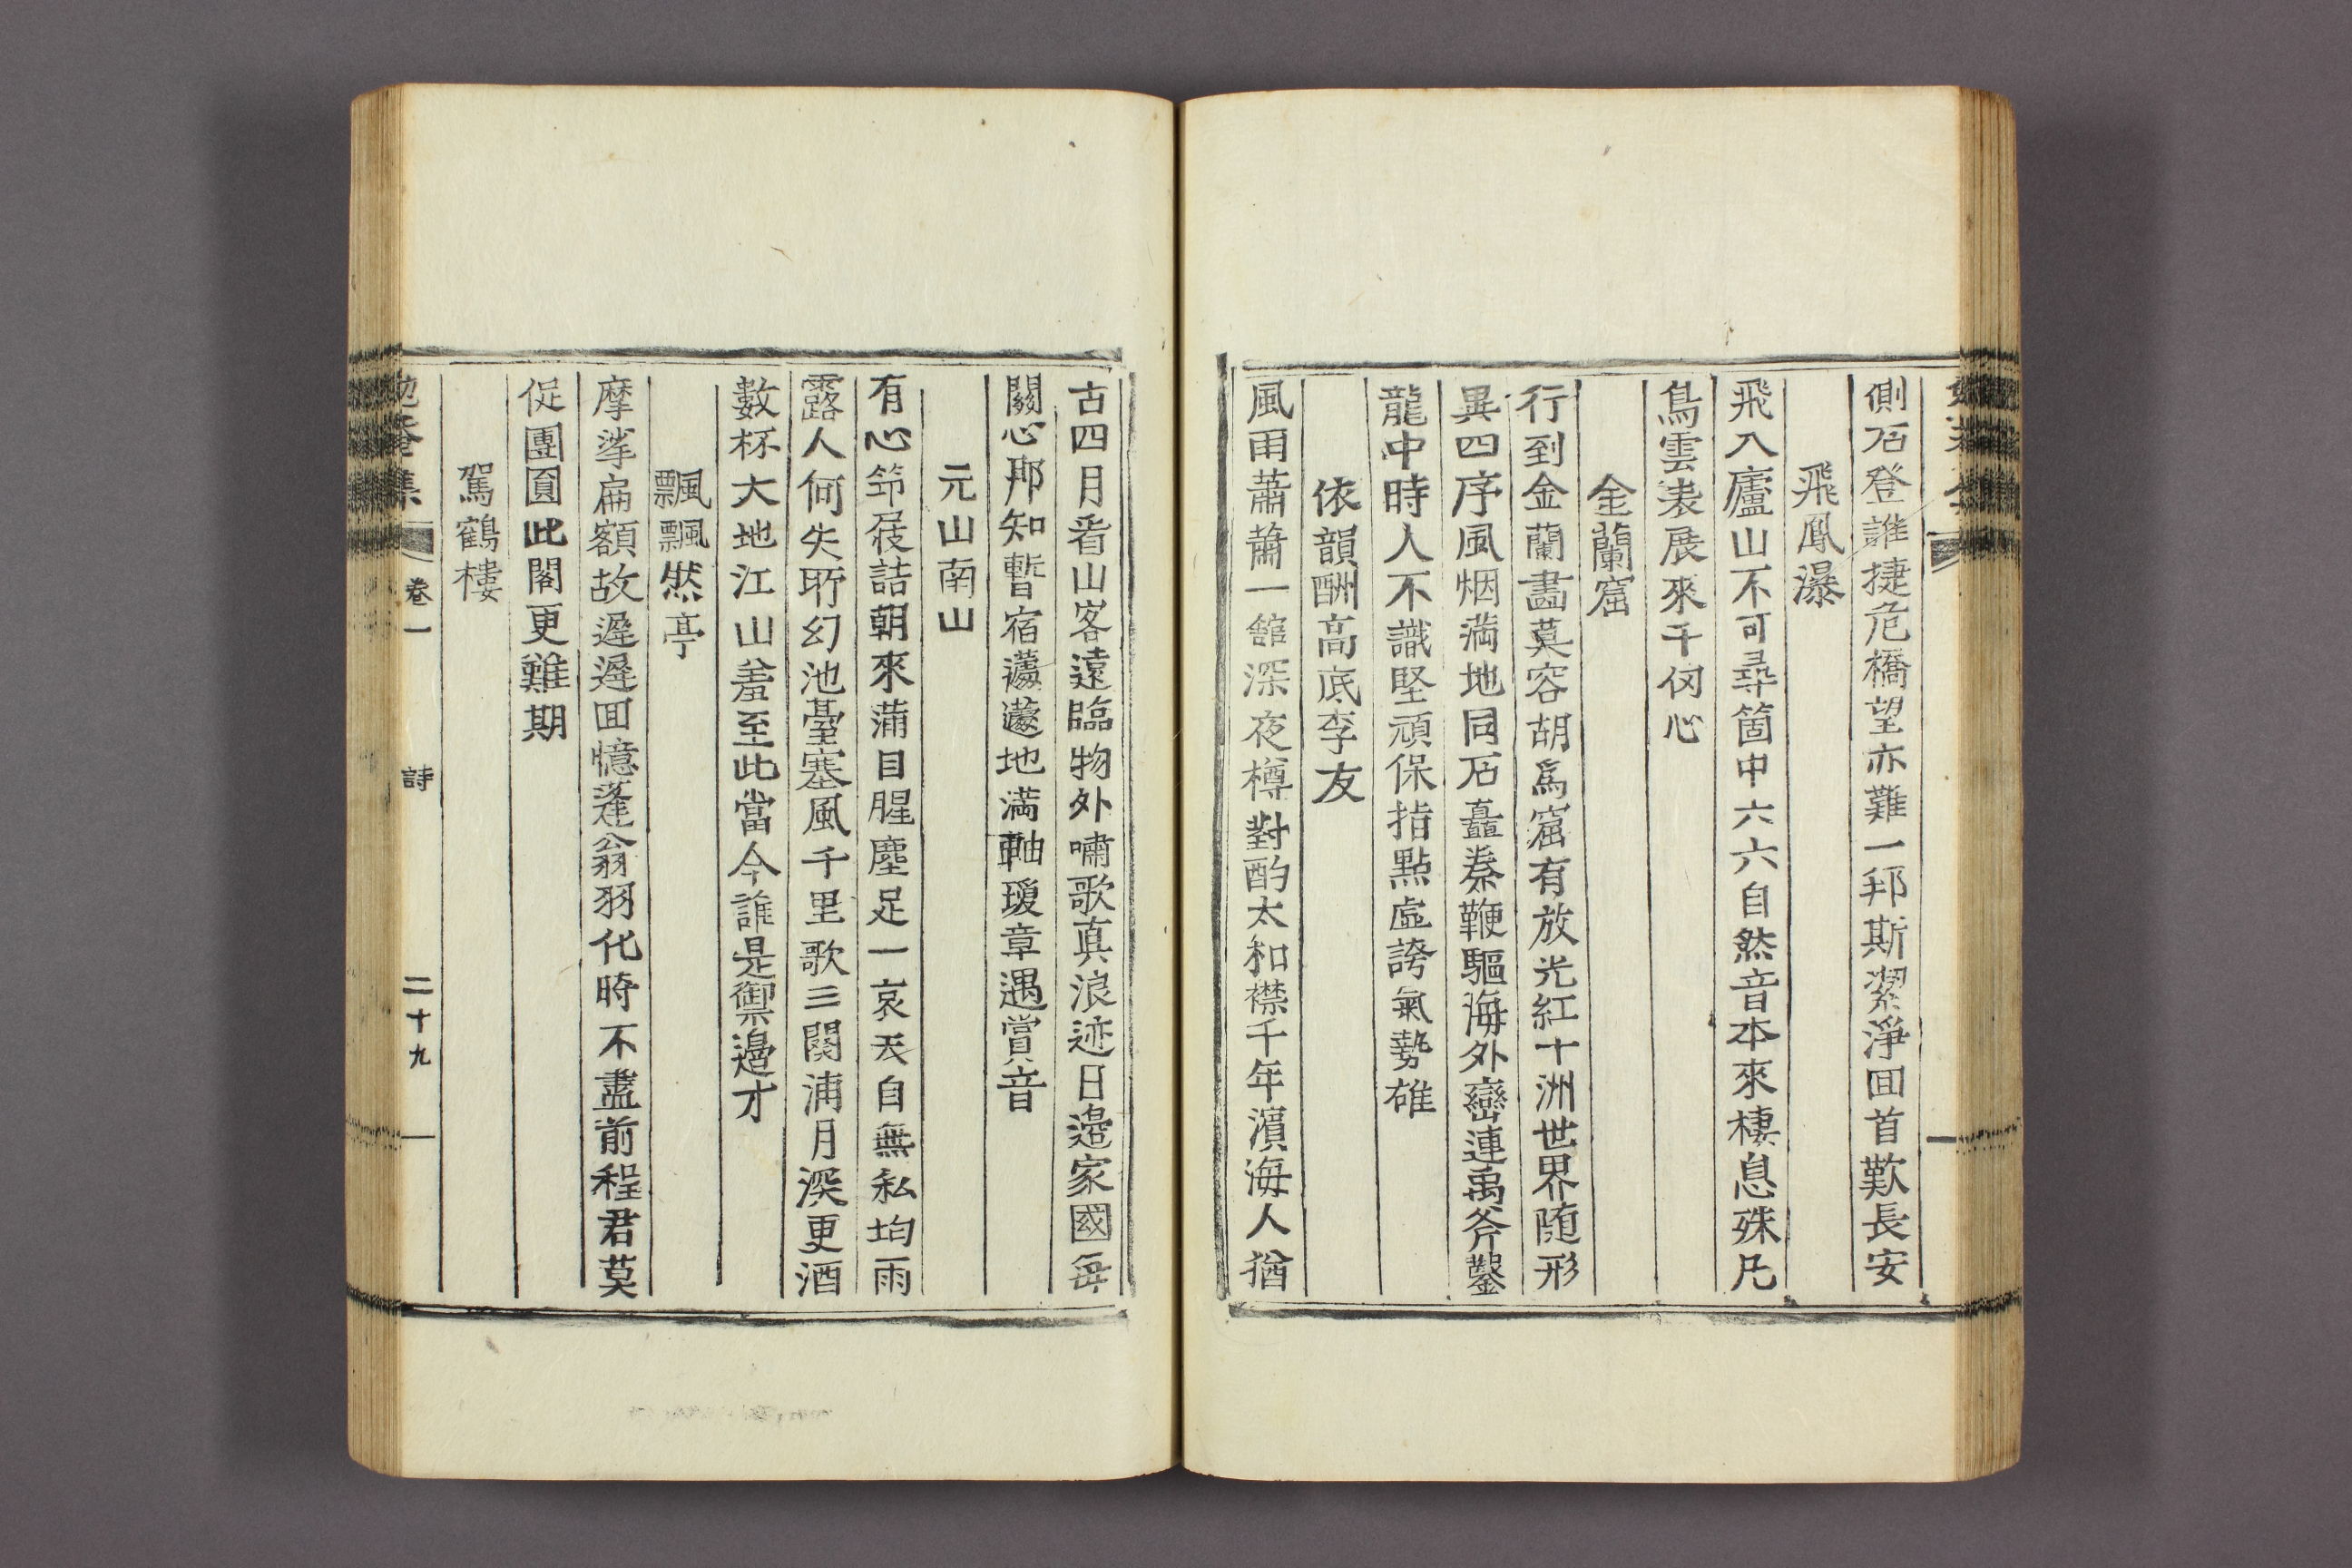 側石登誰捷危橋望亦難一邦斯潔淨回首歎長安
飛鳳瀑
飛入廬山不可尋箇中六六自然音本來棲息殊凡
鳥雲表展來千仞心
金蘭窟
行到金蘭畵莫容胡爲窟有放光紅十洲世界随形
異四序風烟滿地同石矗秦鞭驅海外巒連禹斧鑿
龍中時人不識堅頑保指點虛誇氣勢雄
依韻酬高底李友
風雨蕭蕭一舘深夜樽對酌太和襟千年濱海人猶
古四月看山客遠臨物外嘯歌眞浪迹日邊家國每
關心那知暫宿蘧蘧地滿軸瓊章遇賞音
元山南山
有心笻屐詰朝來滿目腥塵足一哀天自無私均雨
露人何失所幻池臺塞風千里歌三関浦月深更酒
數杯大地江山羞至此當今誰是禦邊才
飄飄然亭
摩挲扁額故遲遲回憶蓬翁羽化時不盡前程君莫
促團圓此閣更難期
駕鶴樓
勉菴集 卷一 詩 二十九